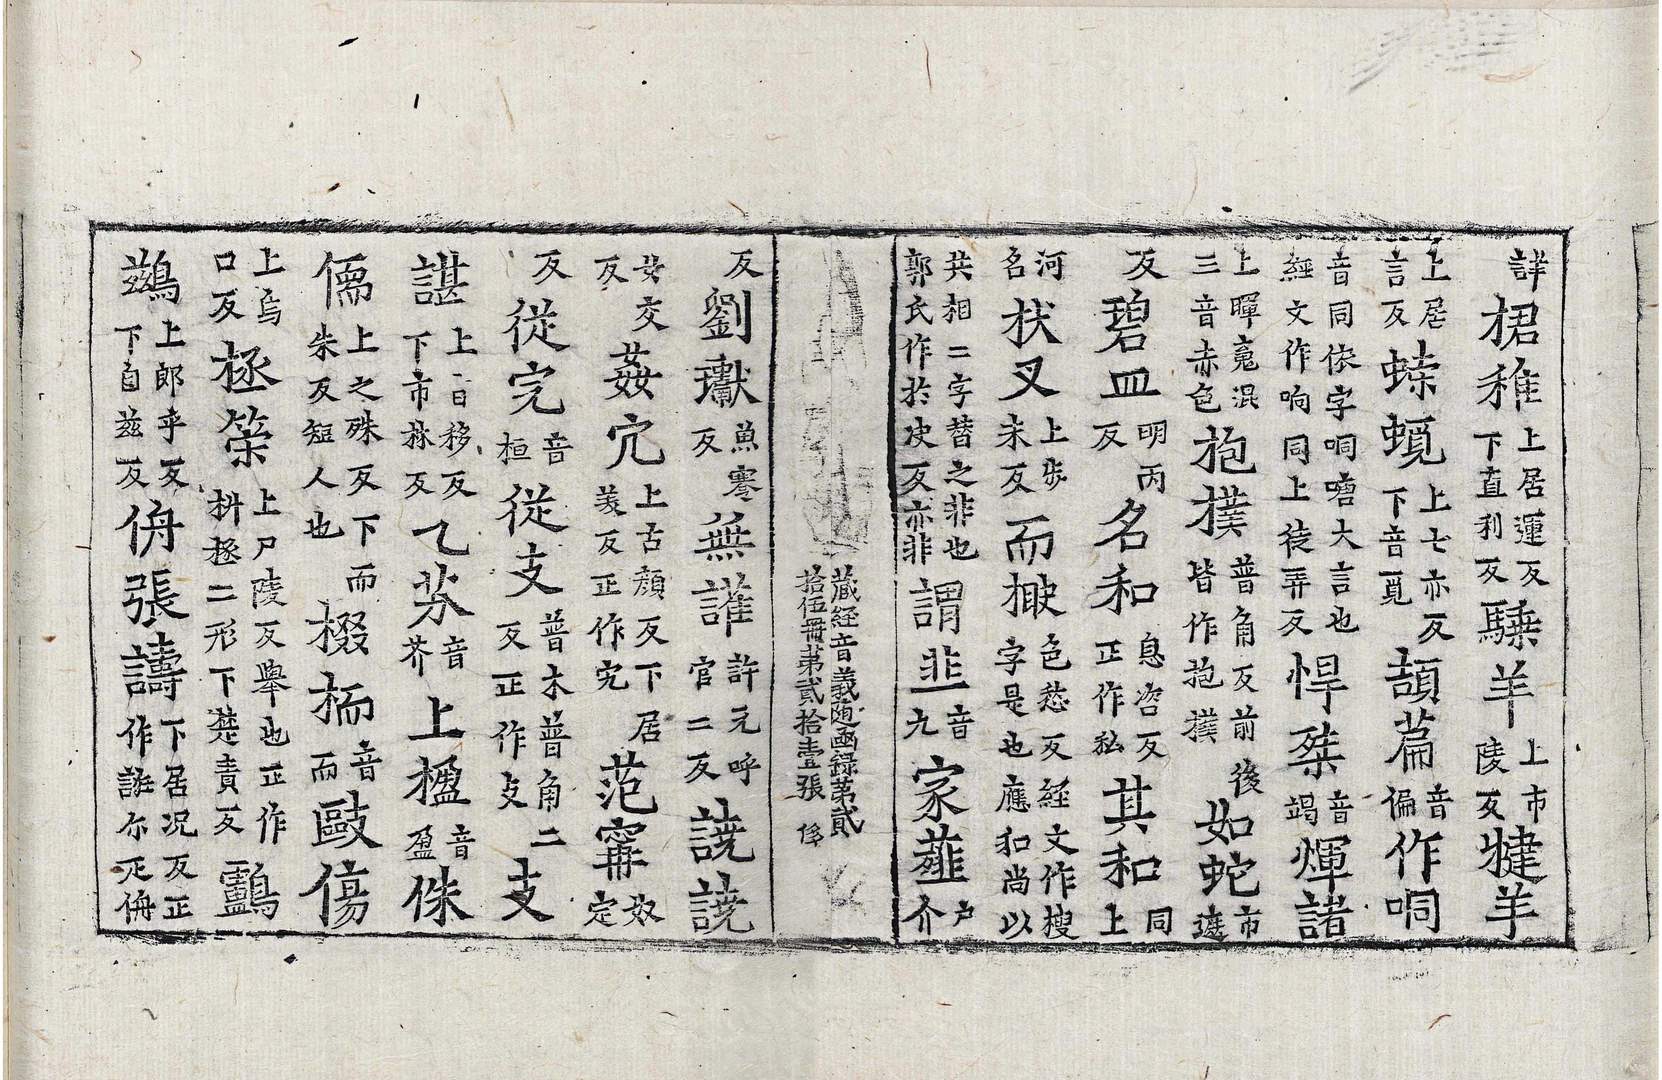 詳桾稚上居運反下直利反騬羊上市陵反犍羊
上居言反蛷螝上七亦反下音覓頡萹音徧作哃
音同依字哃嘡大言也經文作响同上徒弄反悍桀音竭煇諸
上暉䰟混三音赤色抱撲普角反前後皆作抱撲如蛇市遮
反碧皿明丙反名和息咨反正作私其和同上
河名栿叉上步末反而𣔙色愁反經文作搜字是也應和尚以
共相二字替之非也郭氏作於决反亦非謂韭音九家薤户介
藏經音義隨函錄第貳拾伍冊第貳拾壹張 俻
反劉瓛魚蹇反無讙許元呼官二反譊譊
女交反姦宄上古顔反下居美反正作宄范甯奴定
反從完音桓從支普木普角二反正作攴支
諶上日移反下市林反乁芥音芥上楹音盈侏
儒上之殊反下而朱反短人也棳㮕音而毆傷
上烏口反極策上尸陵反舉也正作拼拯二形下楚責反鸕
鷀上郎乎反下自兹反侜張譸下居况反正作誑尔疋侜